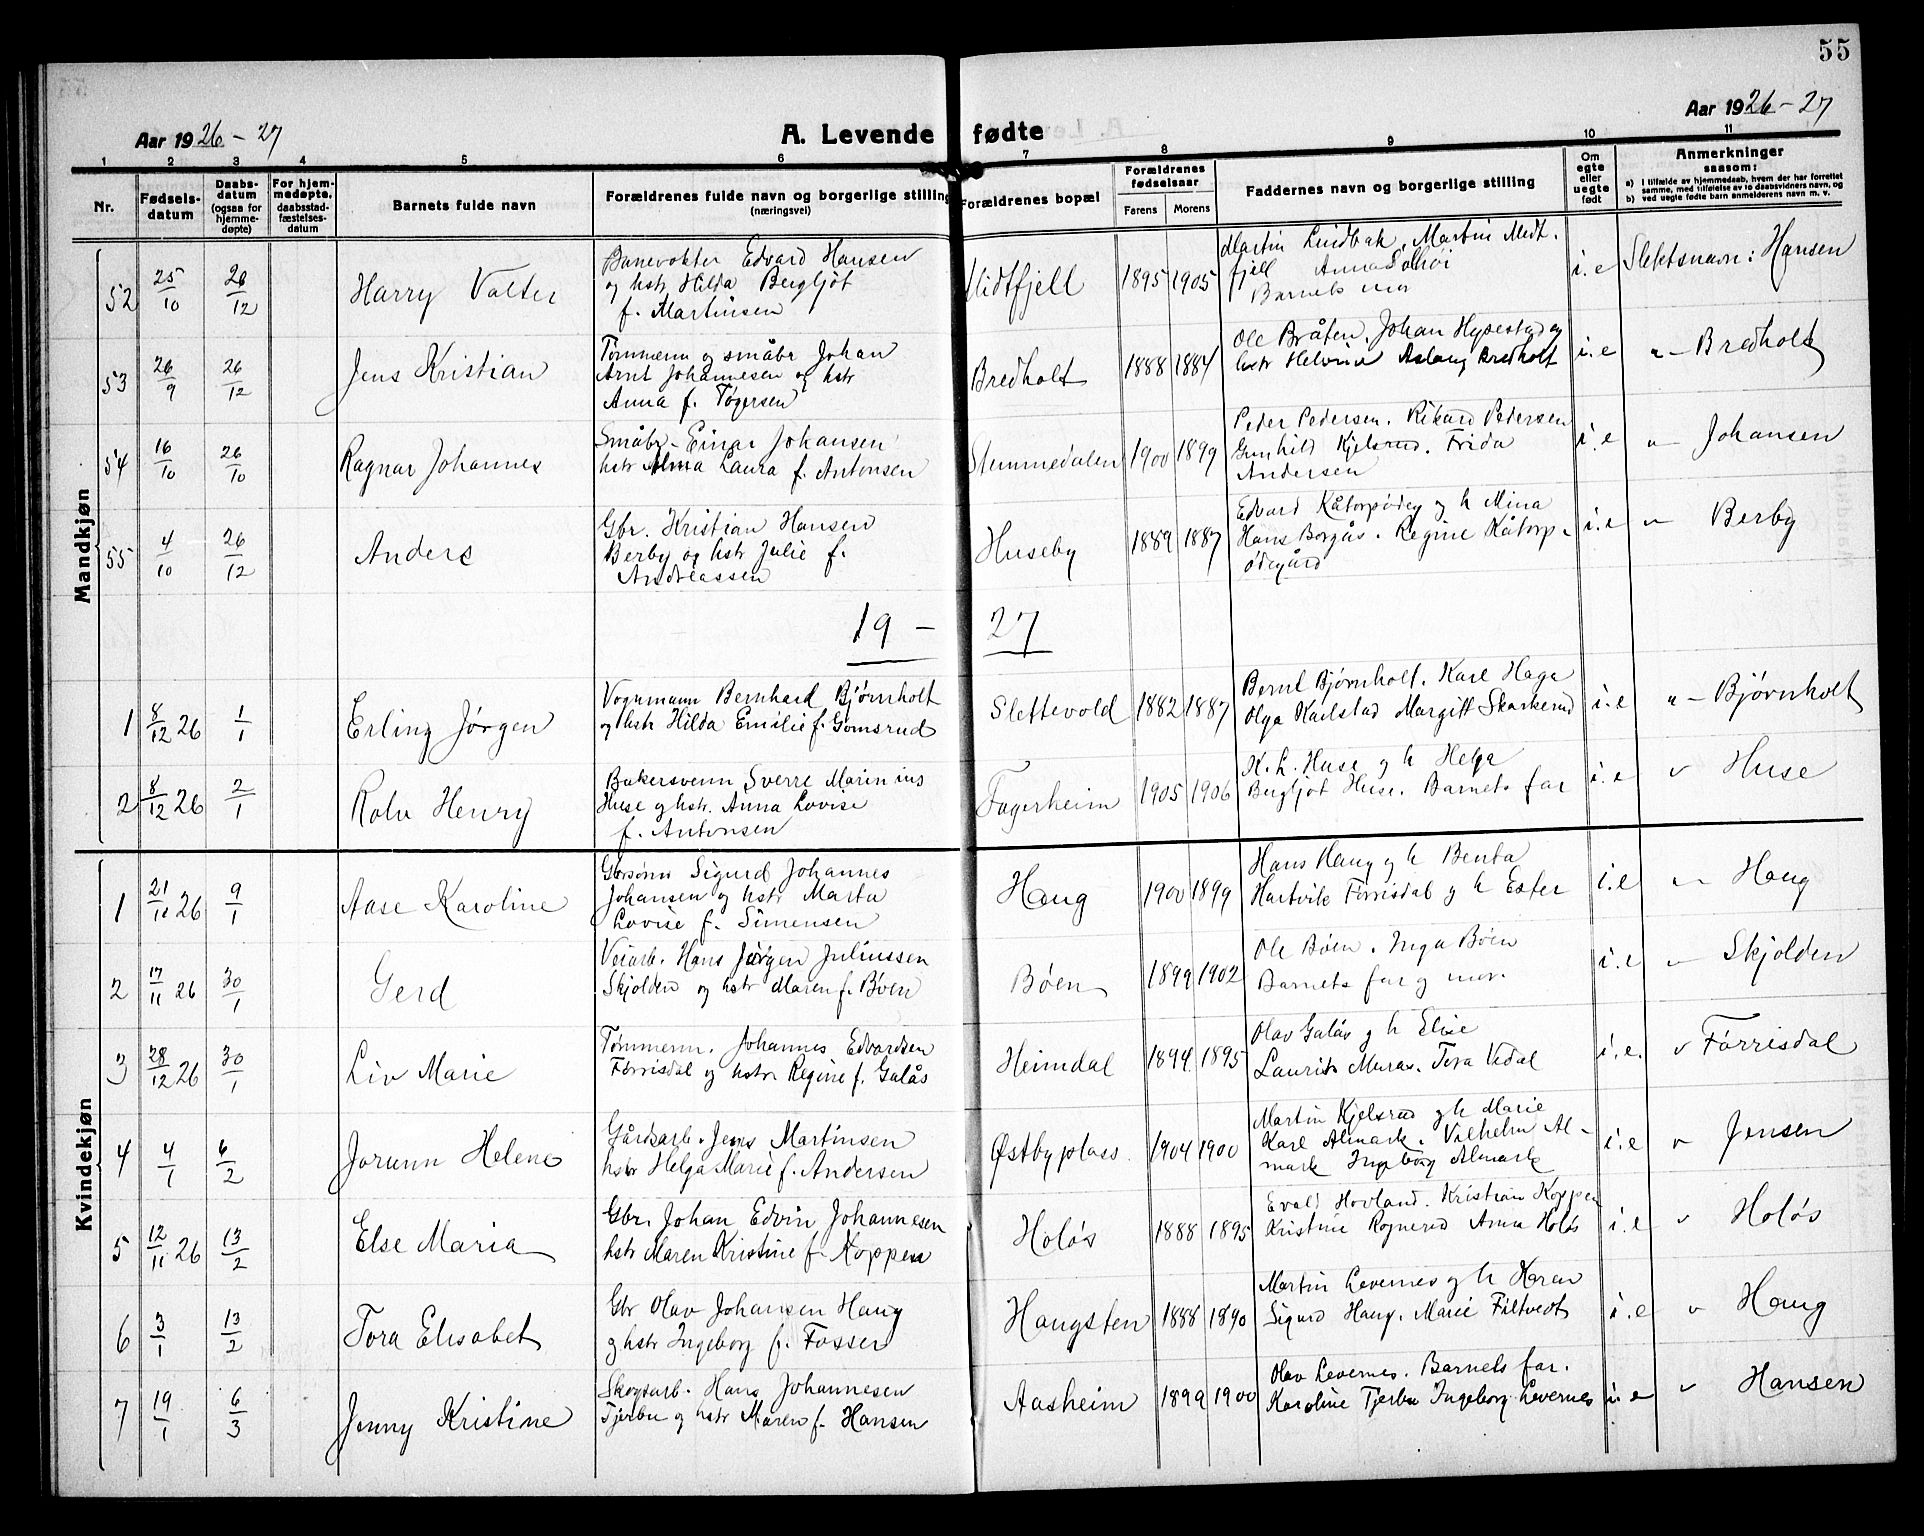 55
Aar 1926-27
A. Levende fødte
Aar 1926-27
1 2 3 4 5 6 7 8 9 10 11
Nr.
Fødsels-
datum
Daabs-
datum
(ogsaa for
hjemme-
døpte)
For hjem-
medøpte,
daabsstad-
fæstelses-
datum
Barnets fulde navn
Forældrenes fulde navn og borgerlige stilling
(næringsvei)
Forældrenes bopæl
Forældrenes
fødselsaar
Farens Morens
Faddernes navn og borgerlige stilling
Om
egte
eller
uegte
født
Anmerkninger
saasom:
a) I tilfælde av hjemmedaab, hvem der har forrettet
samme, med tilføielse av to daabsvidners navn, og
b) ved uegte fødte barn anmelderens navn m. v.
Mandkjøn
52 25/10 26/12 Harry Valter
Banevokter Edvard Hansen
og hstr Hilda Bergljot
f. Martinsen
Midtfjell 1895 1905
Martin Lindbak. Martin Midt-
fjell Anna Solhøi
Barnets mor
i.e Slektsnavn: Hansen
53 26/9 26/12 Jens Kristian
Tømmerm og småbr Johan
Arnt Johannesen og hstr
Anna f. Tøgersen
Bredholt 1888 1884
Ole Bråten. Johan Hypestad og
hstr Helvine Aslaug Bredholt
i.e " - Bredholt
54 16/10 26/10 Ragnar Johannes
Småbr. Einar Johansen
hstr Alma Laura f. Antonsen
Stemmedalen 1900 1899
Peder Pedersen. Rikard Pedersen
Gunhild Kjelsrud. Frida
Andersen
i.e " Johansen
55 4/10 26/12 Anders
Gbr. Kristian Hansen
Berby og hstr Julie f.
Andreassen
Huseby 1889 1887
Edvard Kåtorpødeg og h Mina
Hans Borgås. Regine Kåtorp-
ødegård
i.e " Berby
19 - 27
1 8/12 26 1/1 Erling Jørgen
Vognmann Bernhard Bjørnholt
og hstr Hilda Emilie f. Gomsrud
Slettevold 1882 1887
Bernt Bjørnholt. Karl Haga
Olga Karlstad Margitt Skarkerud
i.e " - Bjørnholt
2 8/12 26 2/1 Rolv Henry
Bakersvenn Sverre Marinius
Huse og hstr. Anna Lovise
f. Antonsen
Fagerheim 1905 1906
K. L. Huse og h Helga
Bergljot Huse. Barnets far
i.e " Huse
Kvindekjøn
1 21/11 26 9/1 Aase Karoline
Gbrsønn Sigurd Johannes
Johansen og hstr Marta
Lovise f. Simensen
Haug 1900 1899
Hans Haug og h Benta
Hartvik Förrisdal og h Ester
i.e " Haug
2 17/11 26 30/1 Gerd
Veiarb. Hans Jørgen Juliussen
Skjolden og hstr Maren f. Bøen
Bøen 1899 1902
Ole Bøen. Inga Bøen
Barnets far og mor.
i.e " Skjolden
3 28/12 26 30/1 Liv Marie
Tømmerm. Johannes Edvardsen
Förrisdal og hstr Regine f. Galås
Heimdal 1894 1895
Olav Galås og h Elise
Laurits Muras. Tora Vedal
i.e. " Förrisdal
4 4/1 6/2 Jorunn Helene
Gårdsarb. Jens Martinsen
hstr Helga Marie f. Andersen
Østbyplass 1904 1900
Martin Kjelsrud og h Marie
Karl Almark. Vilhelm Al-
mark Ingeborg Almark
i.e " Jensen
5 12/11 26 13/2 Else Maria
Gbr. Johan Edvin Johannesen
hstr Maren Kristine f. Koppen
Holøs 1888 1895
Evald Hovland. Kristian Koppen
Kristine Rognerud Anna Holøs
i.e " Holøs
6 3/1 13/2 Tora Elisabet
Gbr Olav Johansen Haug
og hstr Ingeborg f. Fosser
Haugsten 1888 1890
Martin Levernes og h Karen
Sigurd Haug. Marie Filtvedt
i.e " Haug
7 19/1 6/3 Jenny Kristine
Skogsarb. Hans Johannesen
Tjerbu og hstr Maren f. Hansen
Aasheim 1899 1900
Olav Levernes. Barnets far.
Karoline Tjerbu Ingeborg Levernes
i.e " Hansen